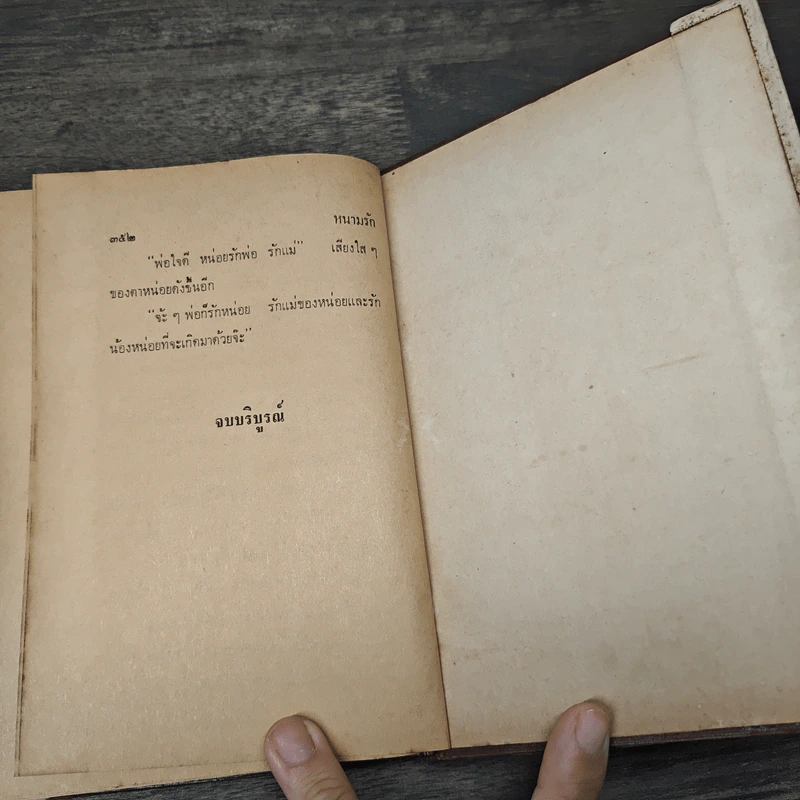 ๓๕๒ หนามรัก
“พ่อใจดี หน่อยรักพ่อ รักแม่” เสียงใส ๆ
ของตาหน่อยดังขึ้นอีก
“จ้ะ ๆ พ่อก็รักหน่อย รักแม่ของหน่อยและรัก
น้องหน่อยที่จะเกิดมาด้วยจ๊ะ”
จบบริบูรณ์